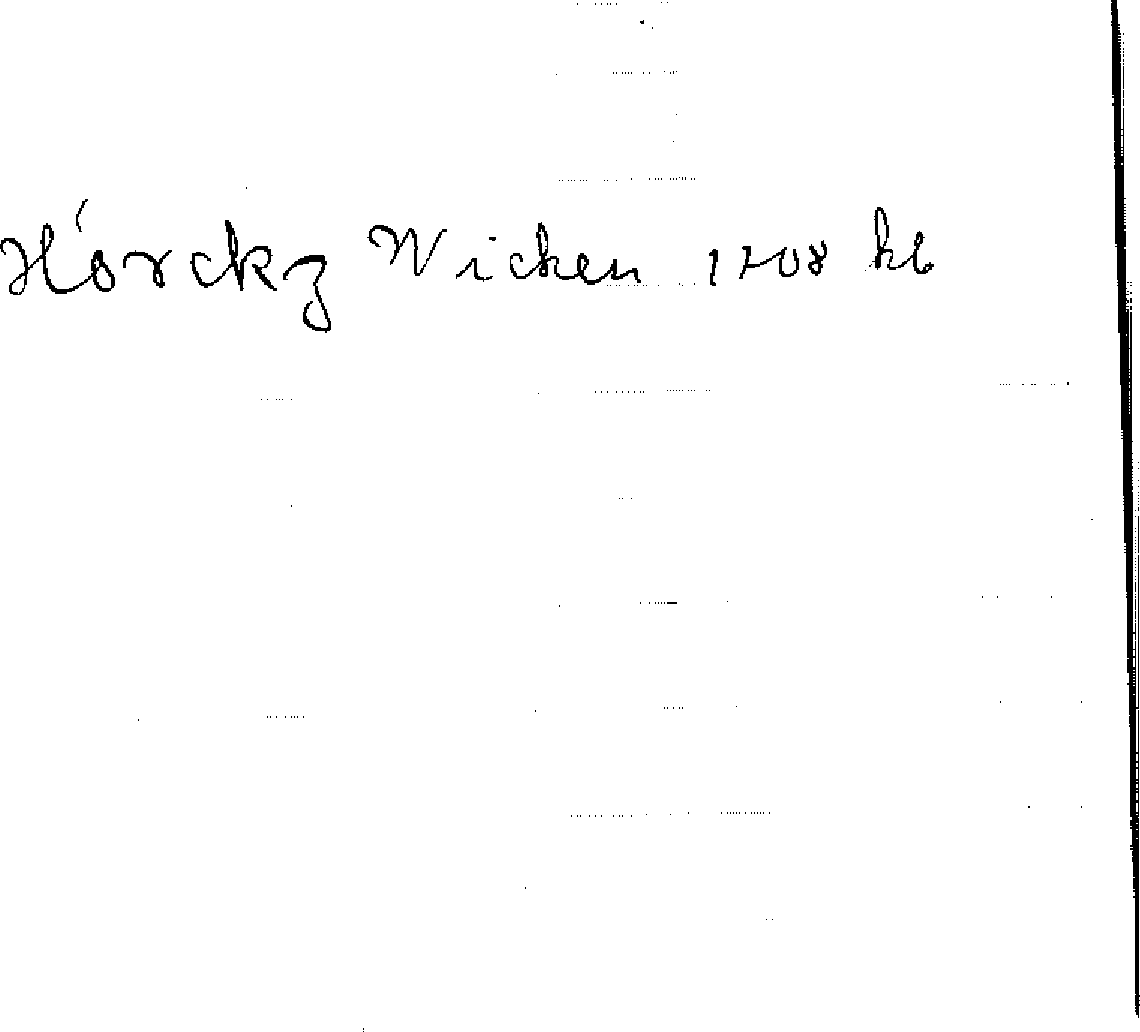 Hórckz Wicken 1708 kb